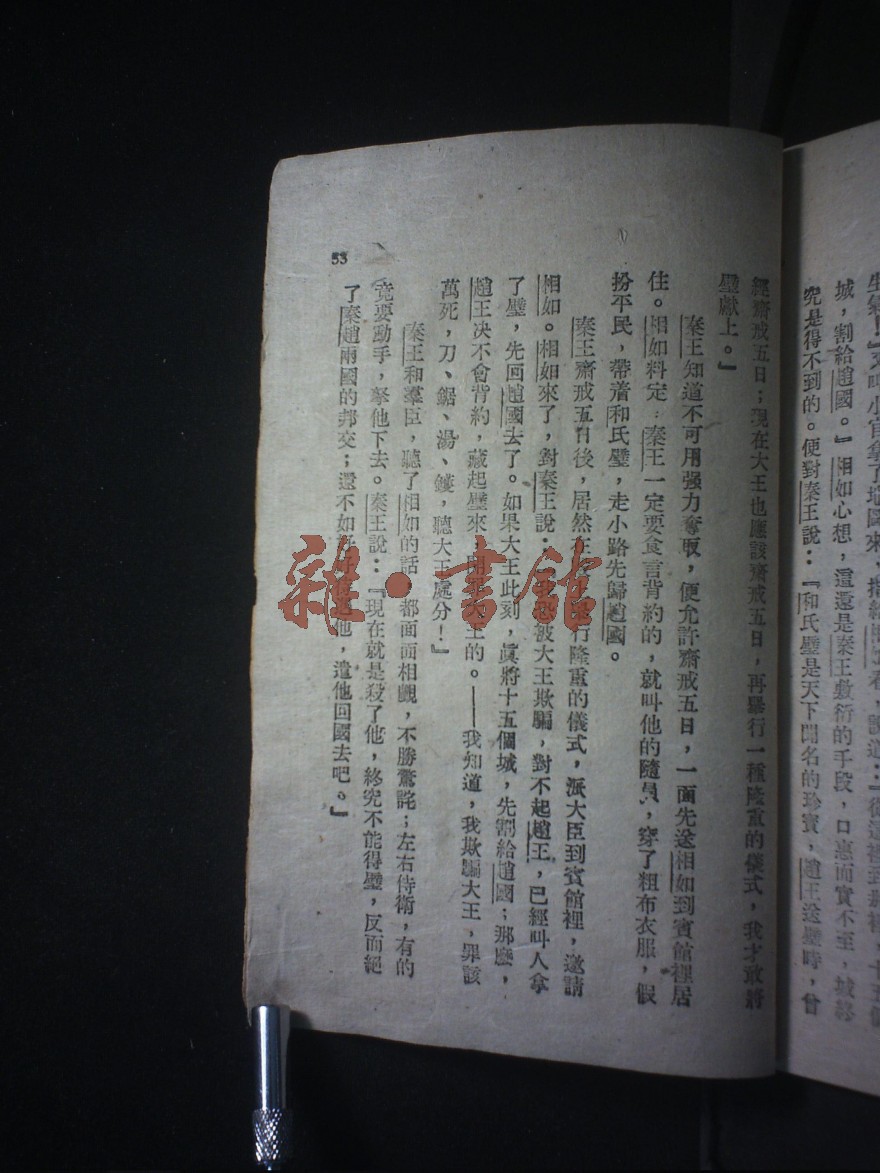 城，割給趙國。』相如心想，這還是秦王敷衍的手段，口惠而實不至，城終
究是得不到的。便對秦王說：『和氏璧是天下聞名的珍寶，趙王送璧時，曾
經齋戒五日；現在大王也應該齋戒五日，再舉行一種隆重的儀式，我才敢將
璧獻上。』
秦王知道不可用强力奪取，便允許齋戒五日，一面先送相如到賓館裡居
住。相如料定：秦王一定要食言背約的，就叫他的隨員，穿了粗布衣服，假
扮平民，帶着和氏璧，走小路先歸趙國。
秦王齋戒五日後，居然在行隆重的儀式，派大臣到賓館裡，邀請
相如。相如來了，對秦王說：恐被大王欺騙，對不起趙王，已經叫人拿
了璧，先回趙國去了。如果大王此刻，眞將十五個城，先割給趙國；那麼，
趙王决不會背約，藏起璧來，王的。——我知道，我欺騙大王，罪該
萬死，刀、鋸、湯、鑊，聽大王處分！』
秦王和羣臣，聽了相如的話，都面面相覷，不勝驚詫；左右侍衛，有的
竟要動手，拏他下去。秦王說：『現在就是殺了他，終究不能得璧，反而絕
了秦趙兩國的邦交；還不如他，遣他回國去吧。』
53
雜·書館